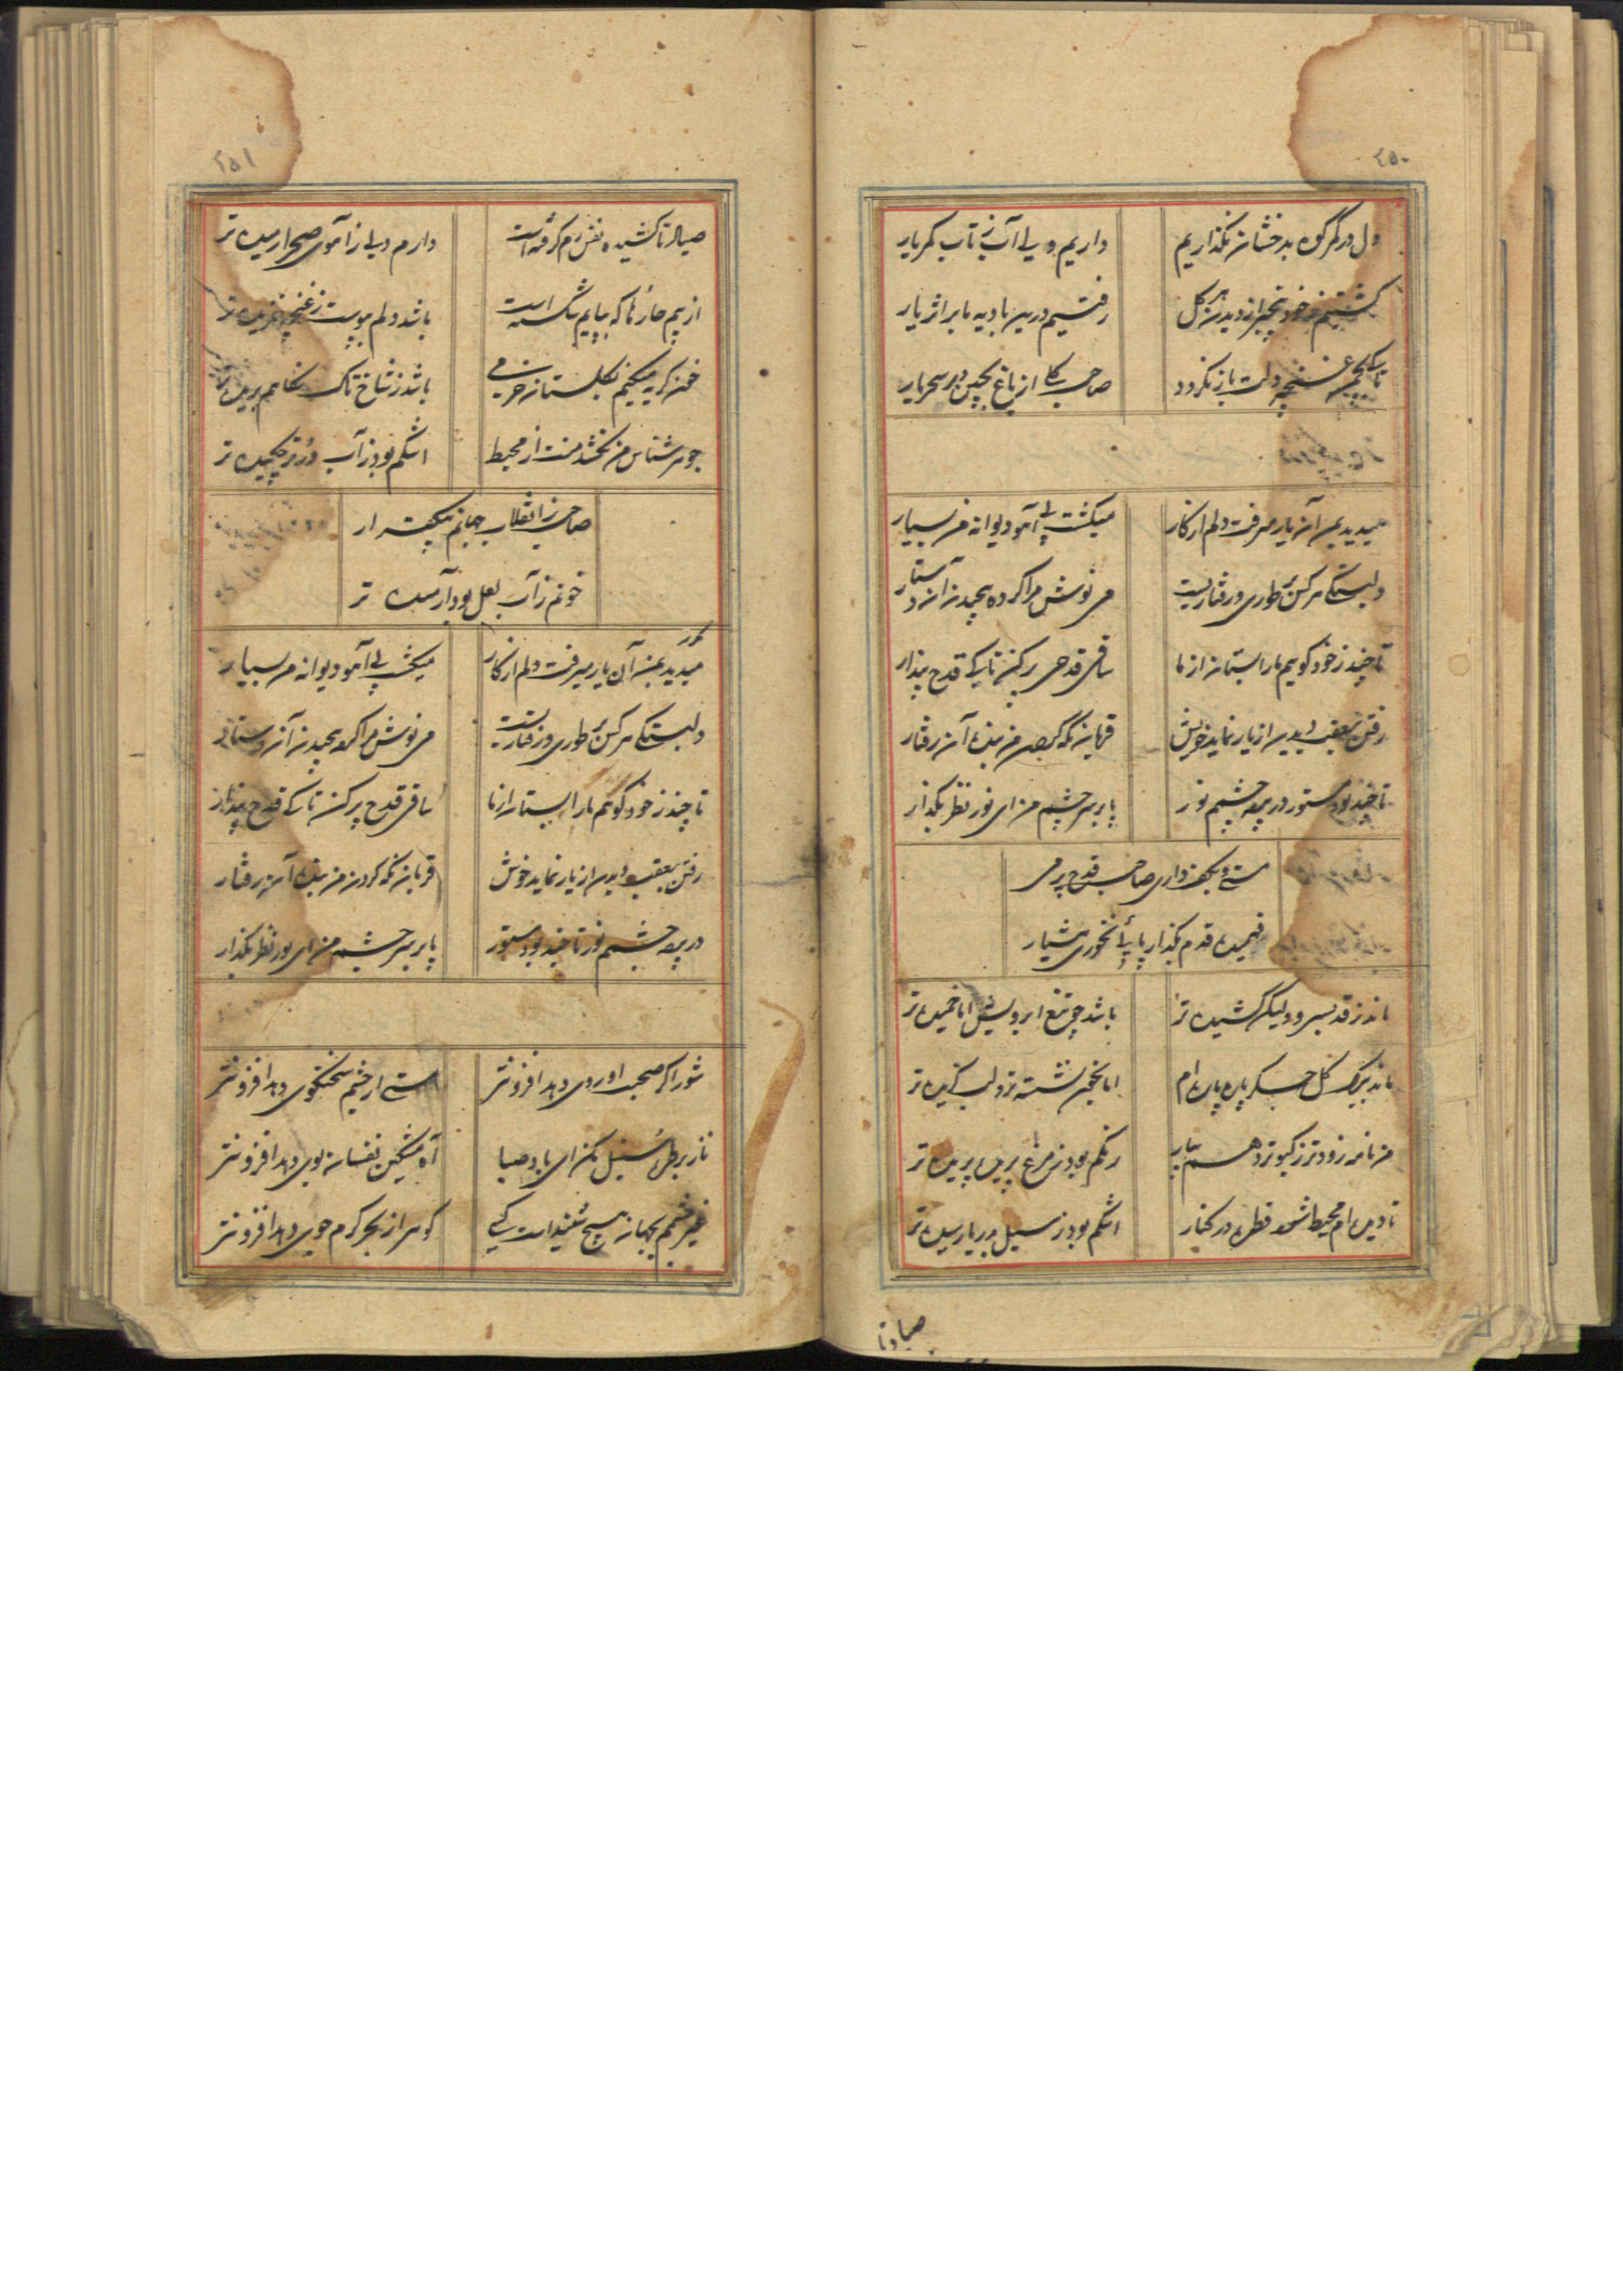 ۲۵۰
دل در گرو کوه بدخشان نگذاریم
داریم دلی آب ز تاب کمر یار
گشتیم ز خود بیخبر از دیدن هر گل
رفتیم درین بادیه ما بر اثر یار
تا غنچه دلت باز نگردد
صاحب گلی از باغ بچین در سحر یار
میدید بمن آن یار میرفت دلم از کار
میگشت پی آهو دیوانه من بسیار
دلبستگی هر کس طوری و رفتاریست
می نوش مرا کرده پیچیدن آن دستار
تا چند ز خود گوییم ما را بستان از ما
ساقی قدحی پر کن تا کی قدح پندار
رفتن بعقب دیدن از یار نماید خوش
قربان نگه کردن من بنده آن رفتار
تا چند بود مستور دریچه چشم تو ز
پا بر سر چشم من ای نور نظر بگذار
مستی و بکف داری صاحب قدح پر می
فهمیده قدم بگذار پایی نخوری هشیار
ماند ز قد بسرو ولیکن کشیده تر
باشد چو تیغ ابرویش اما خمیده تر
ماند ببرگ گل جگر پاره پاره ام
اما بخون نشسته تر و لب گزیده تر
من نامه زودتر ز کبوتر دهم بیار
رنگم بود ز مرغ پریده پریده تر
تا دیده ام محیط شود قطره در کنار
اشکم بود ز سیل بدریا رسیده تر
صیاد تا
۲۵۱
صیاد تا کشیده نفس رم گرفته است
دارم دلی ز آهوی صحرا رمیده تر
از بیم خارها که بپایم شکسته است
باشد دلم بپوست ز غنچه خزیده تر
خون گریه میکنم بگلستان ز خرمی
باشد ز شاخ تاک نگاهم بریده تر
جوهرشناس من نکشد منت از محیط
اشکم بود ز آب در تر چکیده تر
صاحب ز انقلاب جهانم بیک قرار
خونم ز آب لعل بود آرمیده تر
مکرر
میدید بمن آن یار میرفت دلم از کار
میگشت پی آهو دیوانه من بسیار
دلبستگی هر کس طوری و رفتاریست
می نوش مرا کرده پیچیدن آن دستار
تا چند ز خود گوییم ما را بستان از ما
ساقی قدح پر کن تا کی قدح پندار
رفتن بعقب دیدن از یار نماید خوش
قربان نگه کردن من بنده آن رفتار
دریچه چشم تو ز تا چند بود مستور
پا بر سر چشم من ای نور نظر بگذار
شور اگر صحبت او روی دهد افزونتر
مستی از چشم سخنگوی دهد افزونتر
ناز بر طره سنبل مکن ای باد صبا
آه مشکین نفسان بوی دهد افزونتر
غیر چشمم بجهان هیچ شنیدست کسی
گوهر از بحر کرم جوی دهد افزونتر